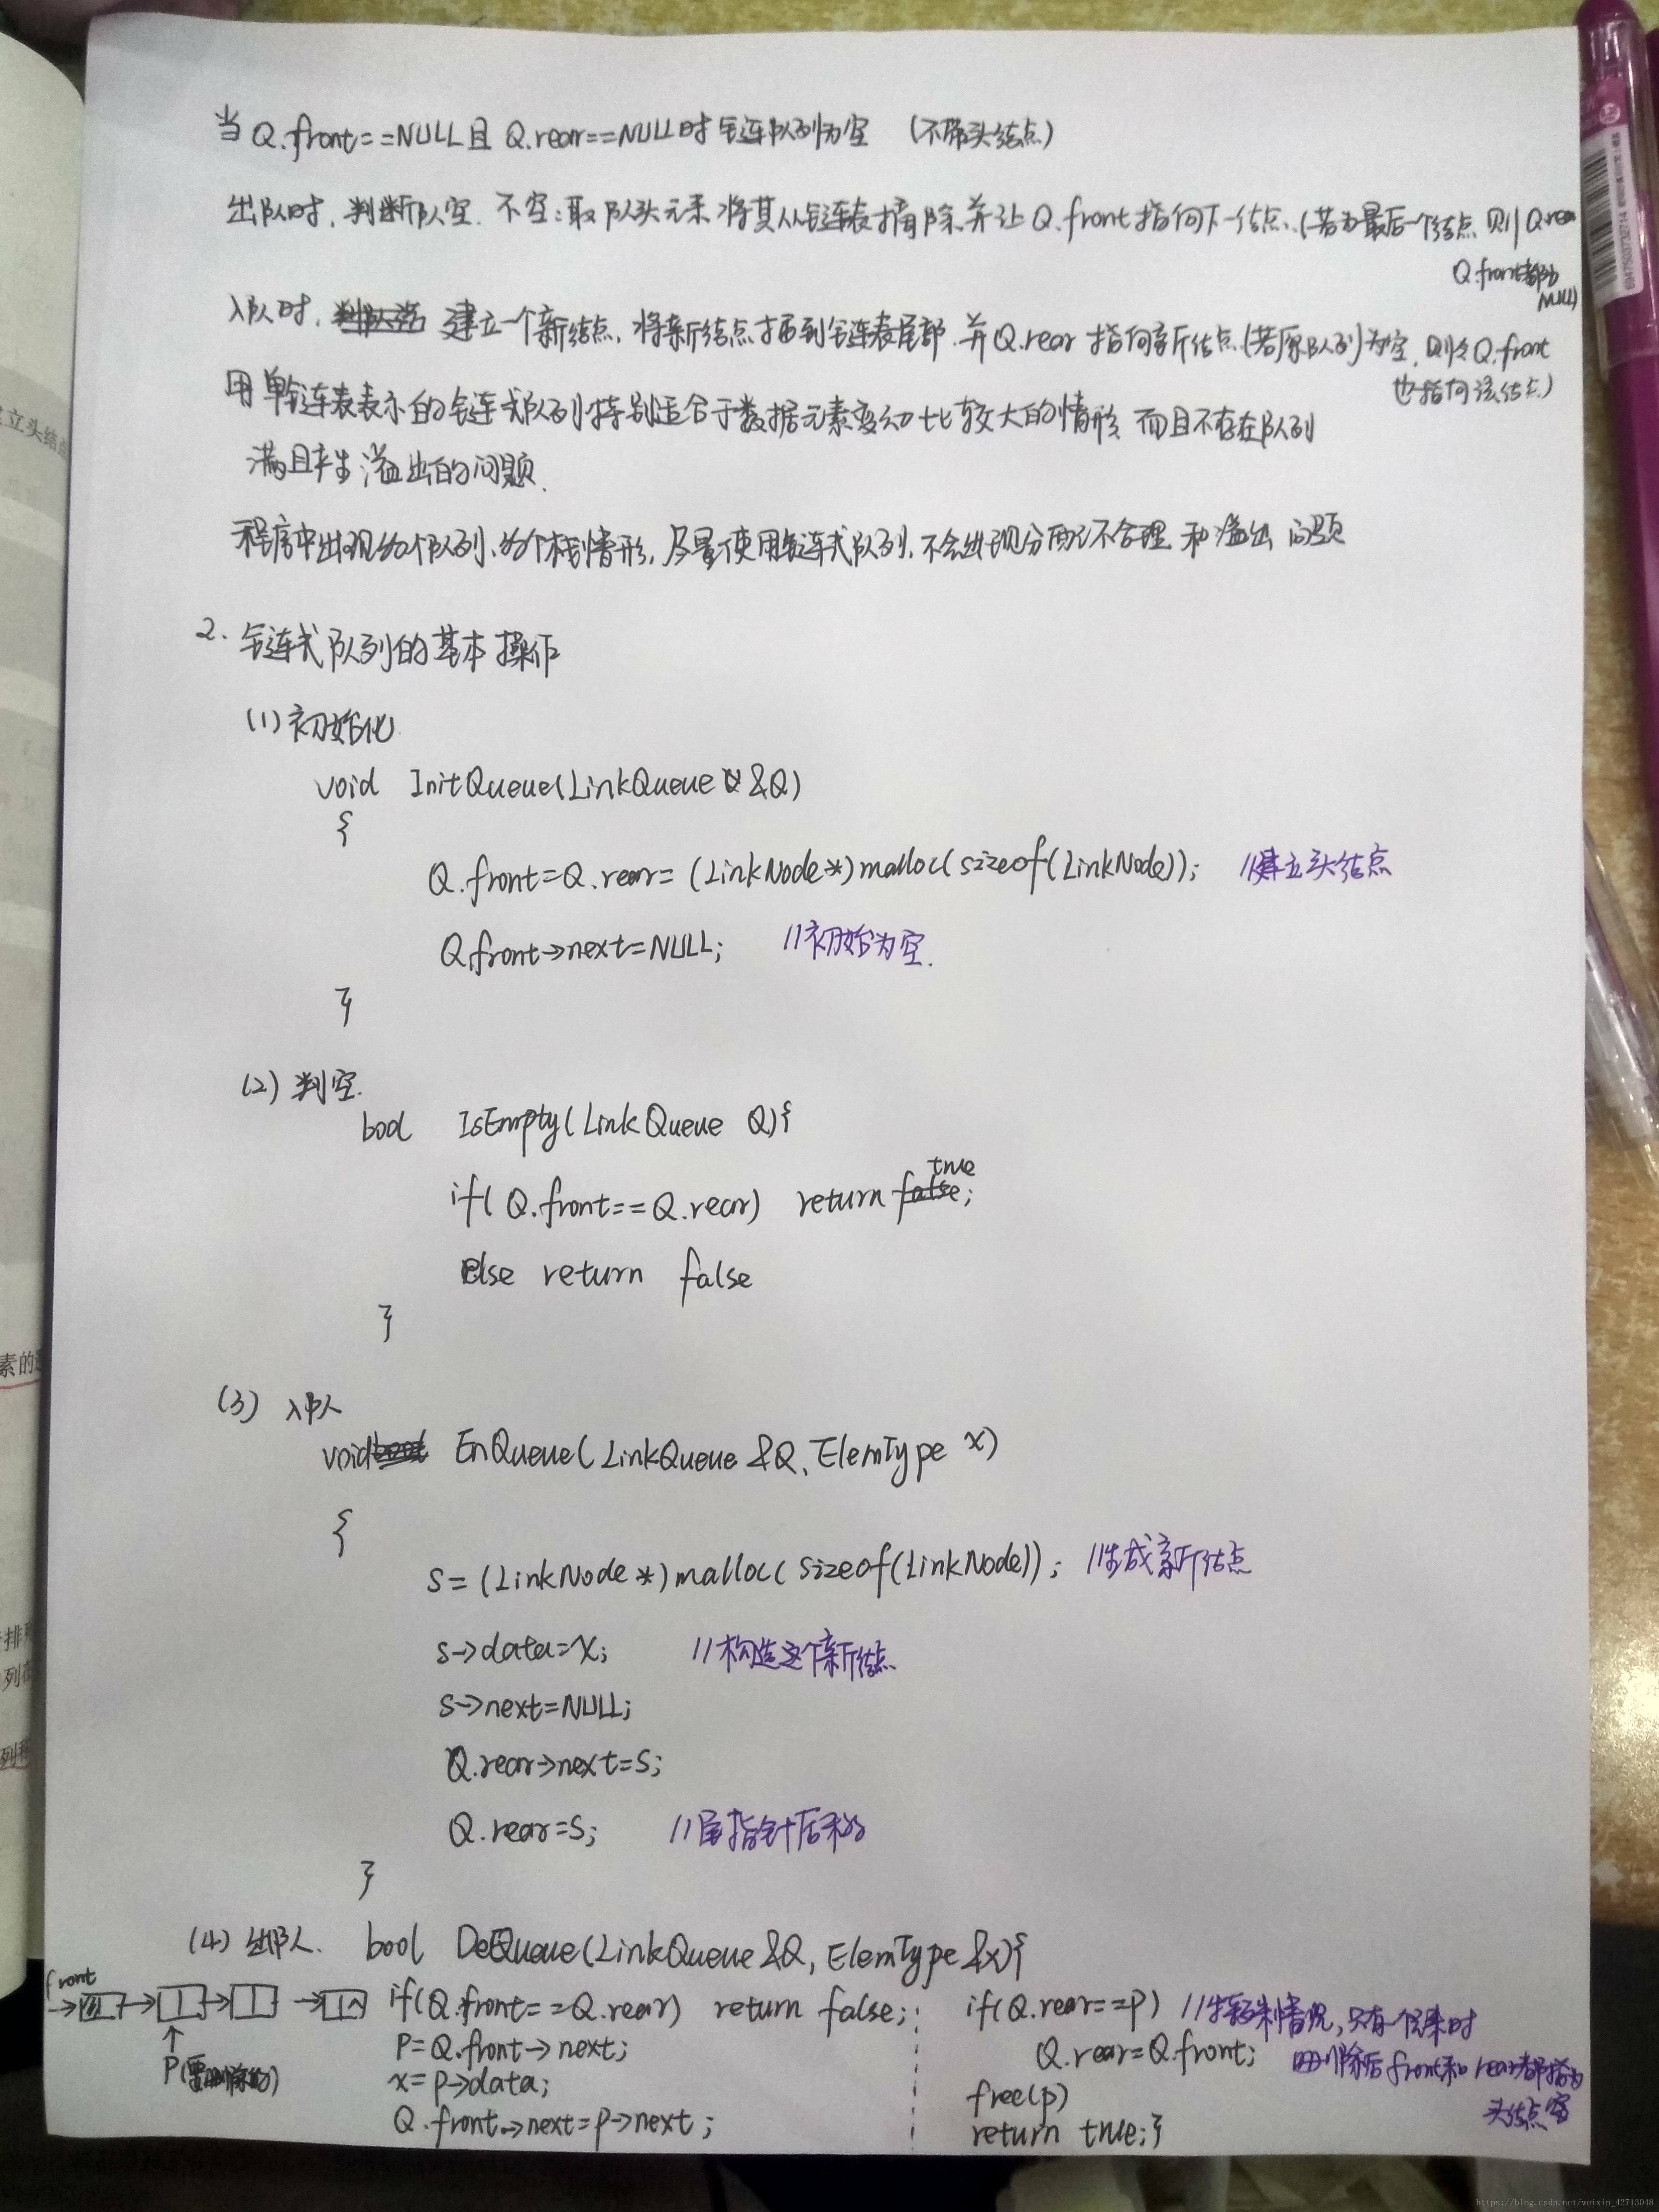 当Q.front==NULL且Q.rear==NULL时链队列为空 (不带头结点)
出队时,判断队空.不空:取队头元素将其从链表摘除.并让Q.front指向下一结点.(若为最后一个结点 则Q.rear
Q.front都为
NULL)
入队时, 建立一个新结点,将新结点插到链表尾部.并Q.rear指向新结点(若原队列为空,则令Q.front
也指向该结点)
用单链表表示的链式队列特别适合于数据元素变动比较大的情形 而且不存在队列
满且产生溢出的问题.
程序中出现多个队列、多个栈情形,尽量使用链式队列,不会出现分配不合理和溢出问题
2. 链式队列的基本操作
(1)初始化
void InitQueue(LinkQueue &Q)
{
Q.front=Q.rear=(LinkNode*)malloc(sizeof(LinkNode)); //建立头结点
Q.front->next=NULL; //初始为空.
}
(2)判空.
bool IsEmpty(LinkQueue Q){
true
if(Q.front==Q.rear) return false;
else return false
}
(3) 入队
void bool EnQueue(LinkQueue &Q, ElemType x)
{
s=(LinkNode*)malloc(sizeof(LinkNode)); //生成新结点
s->data=x; //构造这个新结点
s->next=NULL;
Q.rear->next=s;
Q.rear=s; //尾指针后移
}
(4)出队. bool DeQueue(LinkQueue &Q, ElemType &x){
front
if(Q.front==Q.rear) return false;
P=Q.front->next;
P(要删除的)
x=p->data;
Q.front->next=p->next;
if(Q.rear==p) //特殊情况,只有一个元素时
Q.rear=Q.front; 删除后front和rear都指为
头结点
free(p)
return true;}
立头结点
素的
排
列
列
6947503732714
https://blog.csdn.net/weixin_42713048